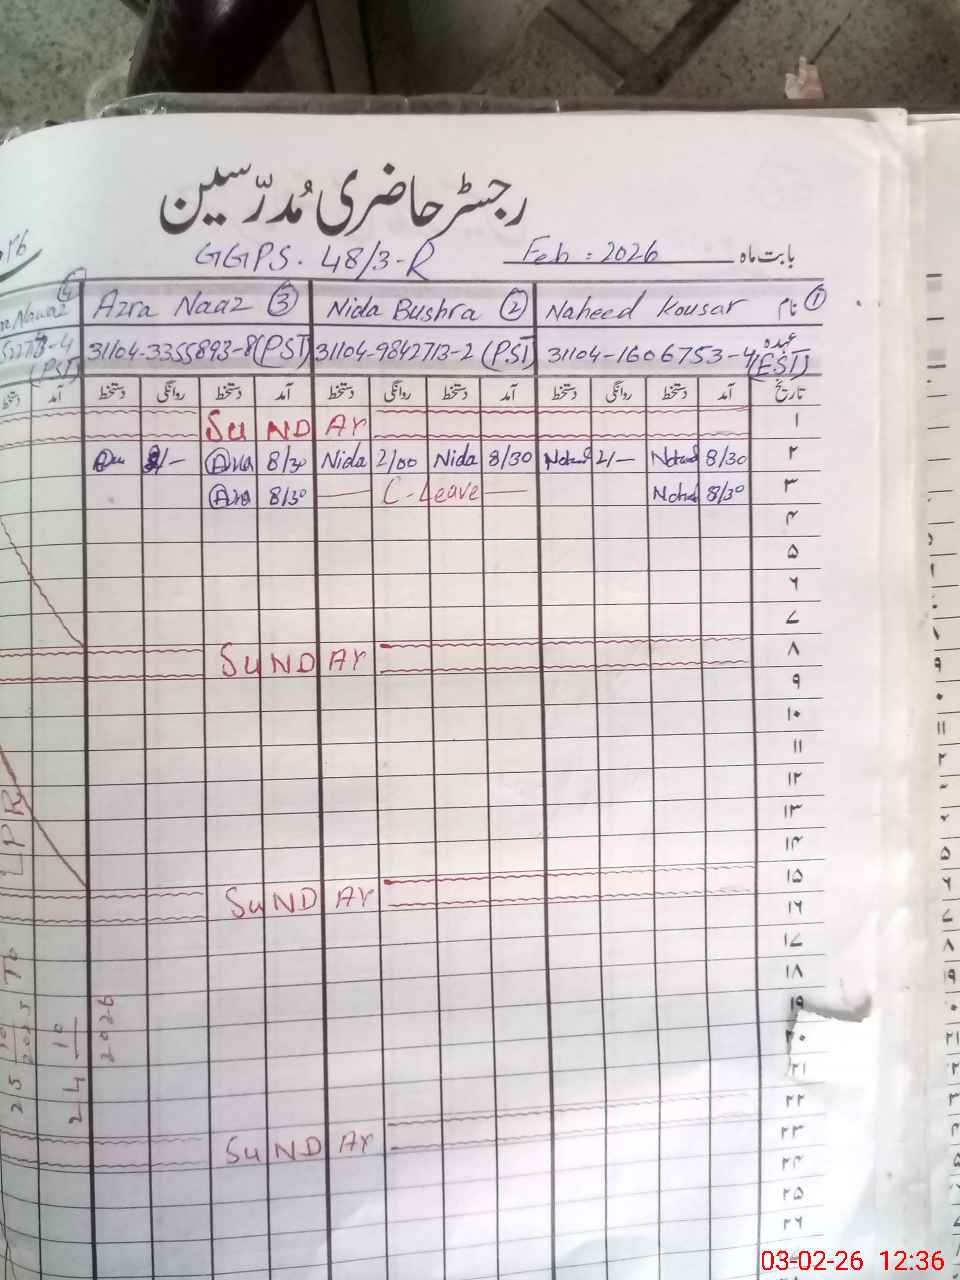 رجسٹر حاضری مُدرّسین
GGPS. 48/3-R بابت ماہ Feb : 2026
نام Naheed Kousar ① Nida Bushra ② Azra Naaz ③
عہدہ 31104-1606753-4 (EST) 31104-9842713-2 (PST) 31104-3355893-8 (PST)
تاریخ آمد دستخط روانگی دستخط آمد دستخط روانگی دستخط آمد دستخط روانگی دستخط آمد
۱ SuNDAY
۲ 8/30 2/— 8/30 Nida 2/00 Nida 8/30 Azra
۳ 8/30 C-Leave 8/30 Azra
۴
۵
۶
۷
۸ SuNDAY
۹
۱۰
۱۱
۱۲
۱۳
۱۴
۱۵ SuNDAY
۱۶
۱۷
۱۸
۱۹
۲۰
۲۱
۲۲
۲۳ SuNDAY
۲۴
۲۵
۲۶
LPR
25 10 2025 To
24 10 2026
03-02-26 12:36